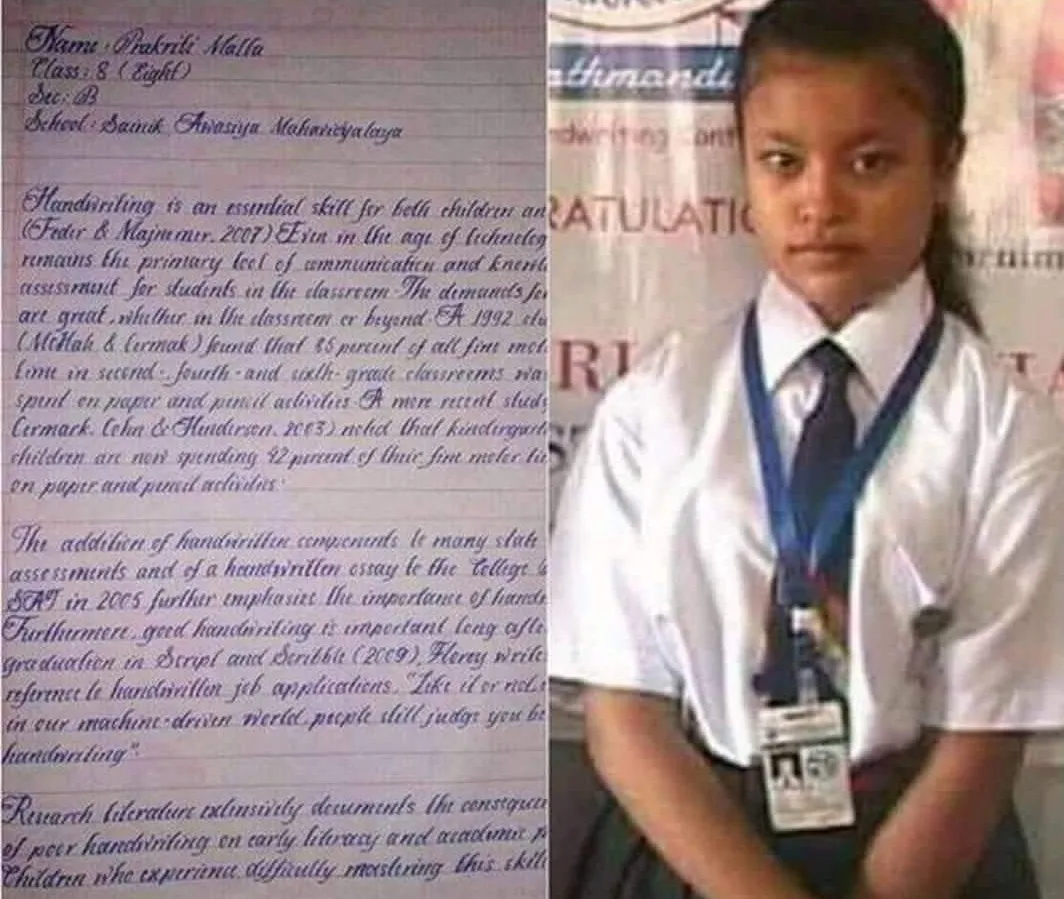 Name : Prakriti Malla
Class : 8 ( Eight )
Sec : B
School : Sainik Awasiya Mahavidyalaya
Handwriting is an essential skill for both children an
(Feder & Majnemer, 2007) Even in the age of technolog
remains the primary tool of communication and knowle
assessment for students in the classroom. The demands for
are great, whether in the classroom or beyond. A 1992 stu
(McHale & Cermak) found that 85 percent of all fine mot
time in second-, fourth- and sixth- grade classrooms was
spent on paper and pencil activities. A more recent study
Cermack, Cohn & Henderson, 2003) noted that kindergart
children are now spending 42 percent of their fine motor ti
on paper and pencil activities.
The addition of handwritten components to many state
assessments and of a handwritten essay to the College
SAT in 2005 further emphasize the importance of handw
Furthermore, good handwriting is important long afte
graduation in Script and Scribble (2009), Florey write
reference to handwritten job applications, "Like it or not,
in our machine-driven world, people still judge you b
handwriting".
Research literature extensively documents the consequen
of poor handwriting on early literacy and academic p
Children who experience difficulty mastering this skill
athmandu
ndwriting Cont
RATULATIO